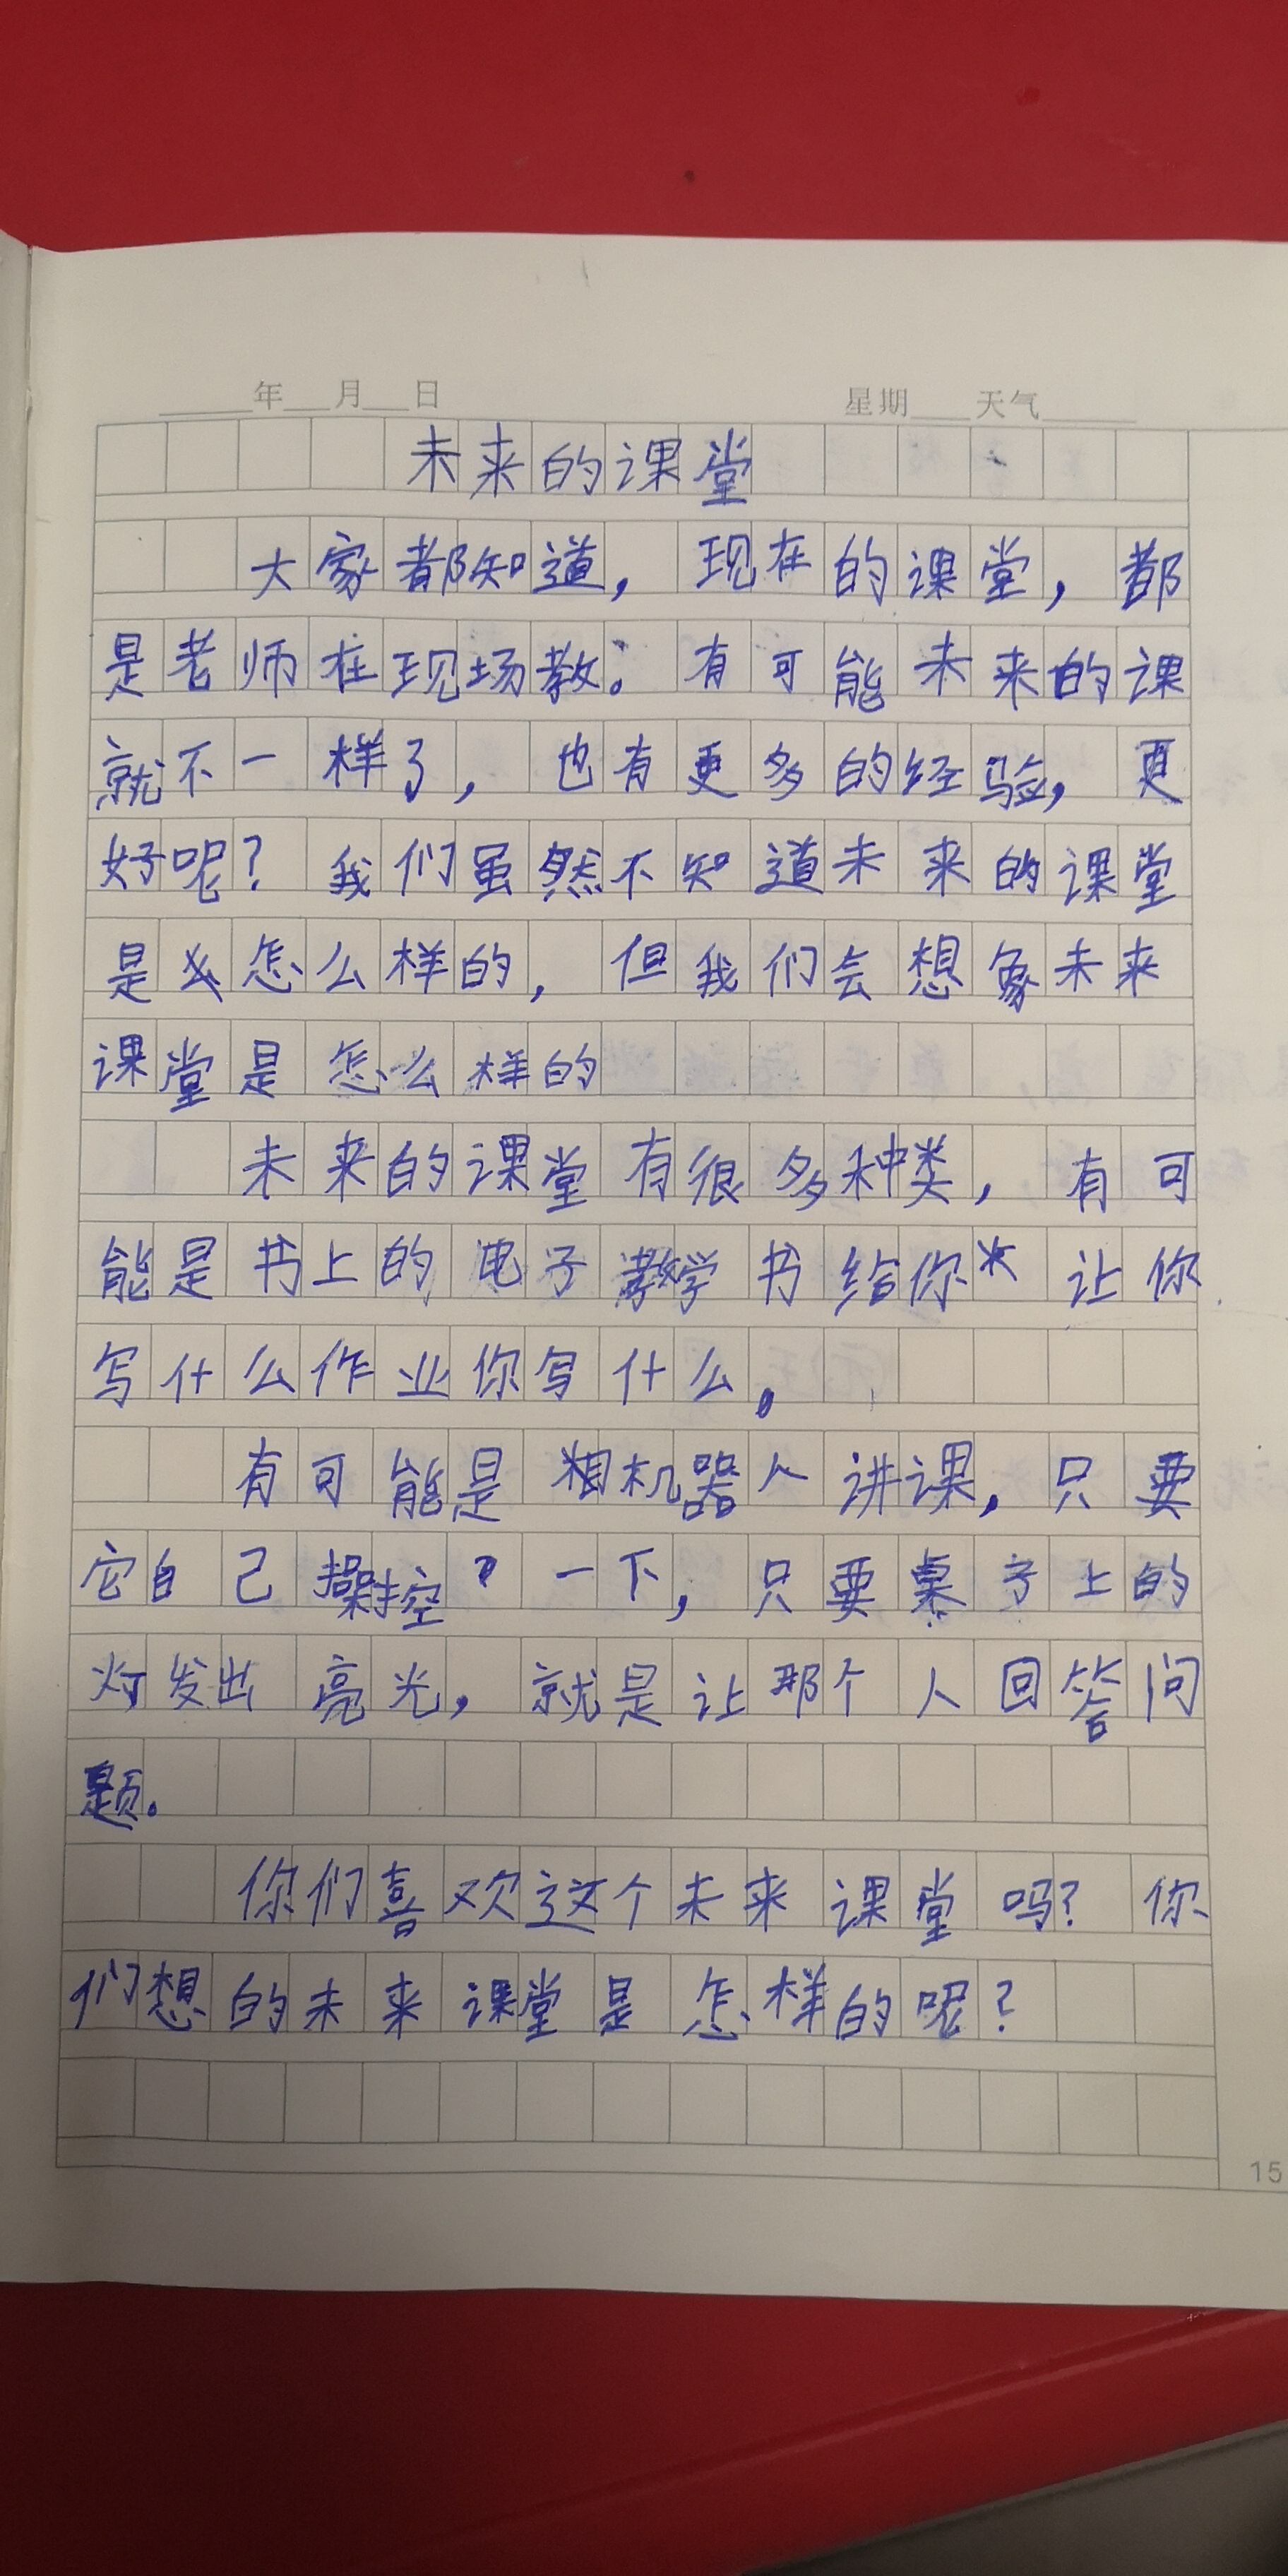 年 月 日 星期 天气
未来的课堂
大家都知道，现在的课堂，都
是老师在现场教。有可能未来的课
就不一样了，也有更多的经验，更
好呢？我们虽然不知道未来的课堂
是怎么样的，但我们会想象未来
课堂是怎么样的
未来的课堂有很多种类，有可
能是书上的电子教学书给你 让你
写什么作业你写什么。
有可能是机器人讲课，只要
它自己操控一下，只要桌子上的
灯发出亮光，就是让那个人回答问
题。
你们喜欢这个未来课堂吗？你
们想的未来课堂是怎样的呢？
15